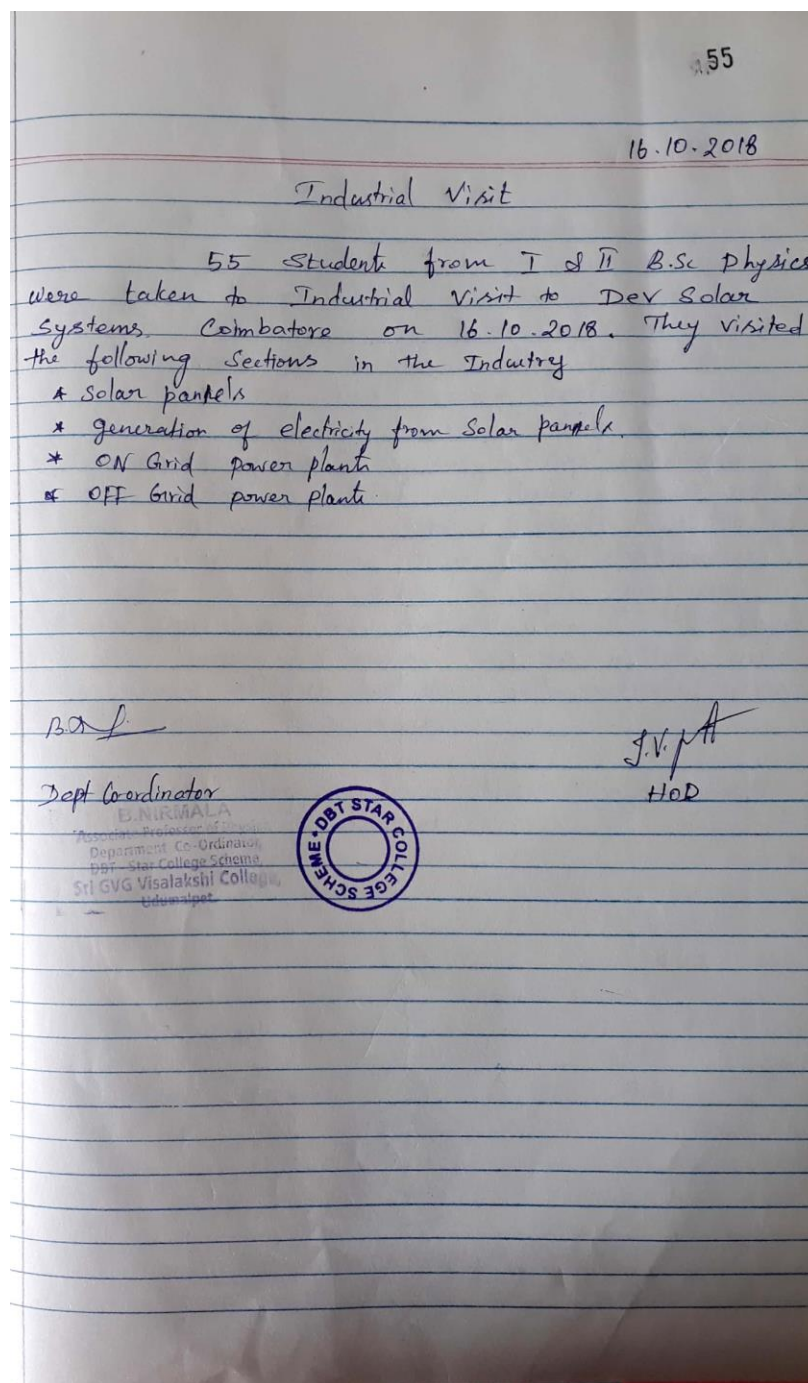 55
16.10.2018
Industrial Visit
55 Students from I & II B.Sc Physics
were taken to Industrial Visit to Dev Solar
Systems Coimbatore on 16.10.2018. They visited
the following Sections in the Industry
* Solar pannels
* generation of electricity from Solar pannels.
* ON Grid power plants
* OFF Grid power plants.
Dept Co-ordinator
HOD
B.NIRMALA
Associate Professor of Physics
Department Co-Ordinator,
DBT - Star College Scheme,
Sri GVG Visalakshi College,
Udumalpet
DBT STAR COLLEGE SCHEME